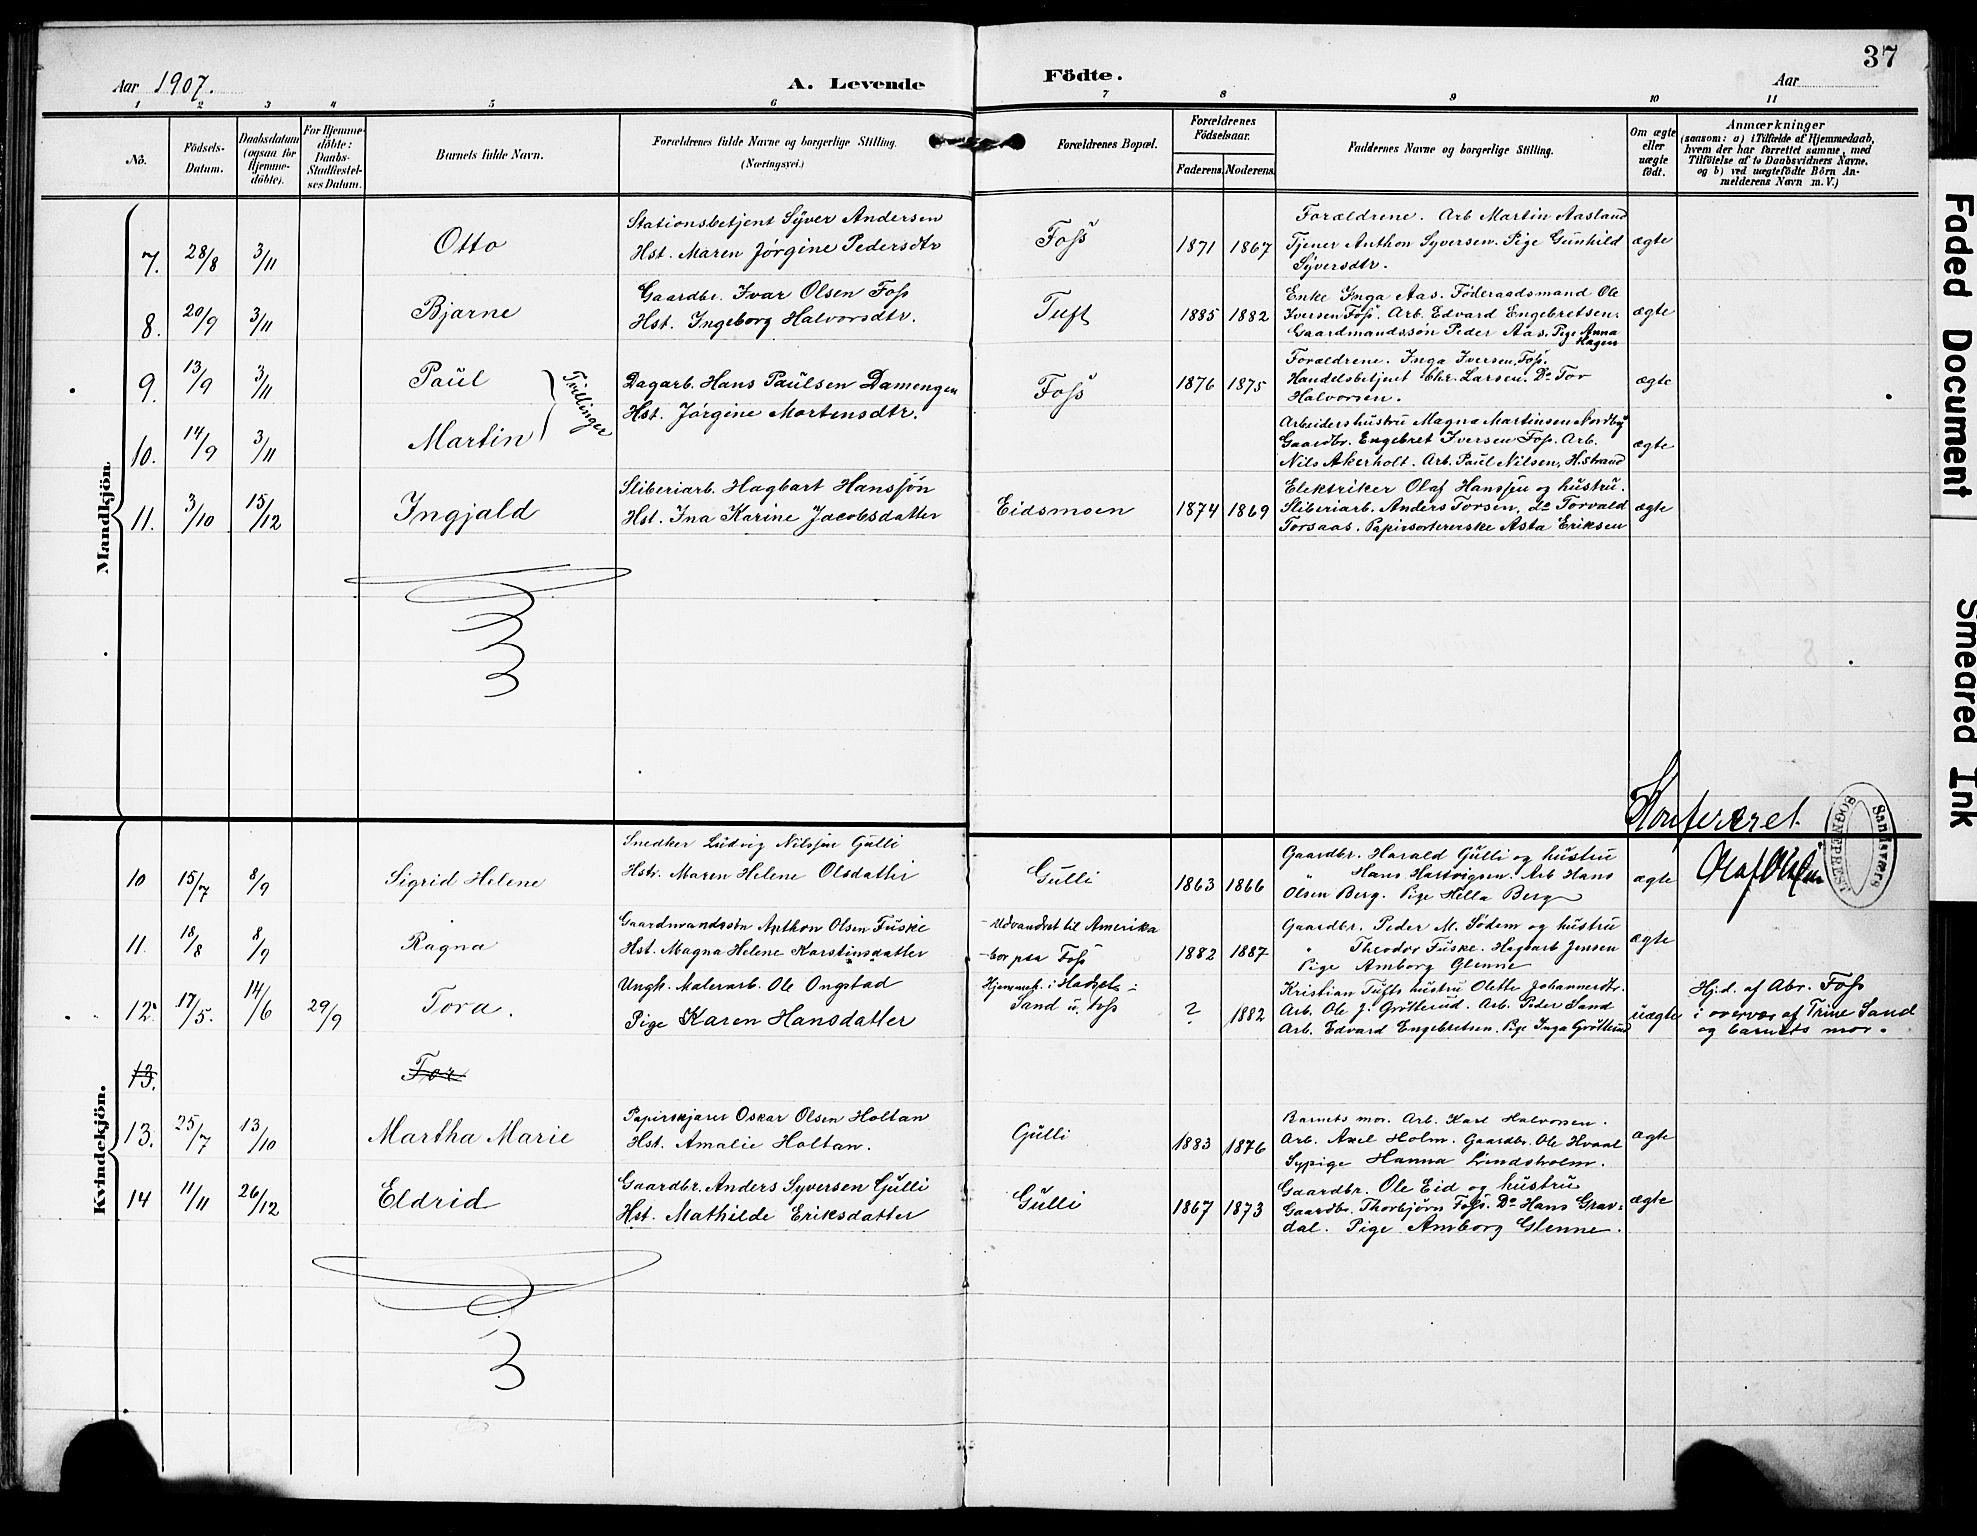 37
Aar 1907.
A. Levende Födte.
Aar
1 2 3 4 5 6 7 8 9 10 11
No.
Födsels-Datum.
Daabsdatum (ogsaa for Hjemme-döbte).
For Hjemme-döbte: Daabs-Stadfæstel-ses Datum.
Barnets fulde Navn.
Forældrenes fulde Navne og borgerlige Stilling.
(Næringsvei.)
Forældrenes Bopæl.
Forældrenes Födselsaar.
Faderens. Moderens.
Faddernes Navne og borgerlige Stilling.
Om ægte eller uægte födt.
Anmærkninger
(saasom: a) i Tilfælde af Hjemmedaab, hvem der har forrettet samme, med Tilföielse af to Daabsvidners Navne, og b) ved uægtefödte Börn Anmelderens Navn m. V.)
Mandkjön.
7. 28/8 3/11 Otto
Stationsbetjent Syver Andersen
Hst. Maren Jörgine Pedersdtr
Foss 1871 1867
Forældrene. Arb Martin Aasland
Tjener Anthon Syversen. Pige Gunhild
Syversdtr.
ægte
8. 20/9 3/11 Bjarne
Gaardbr. Ivar Olsen Foss
Hst. Ingeborg Halvorsdtr.
Tuft 1885 1882
Enke Inga Aas. Föderaadsmand Ole
Iversen Foss. Arb. Edvard Engebretsen.
Gaardmandssön Peder Aas. Pige Anna
Hagen
ægte
9. 13/9 3/11 Paul
Tvillinger
Dagarb. Hans Paulsen Damengen
Hst. Jörgine Mortensdtr.
Foss 1876 1875
Forældrene. Inga Iversen, Foss.
Handelsbetjent Chr. Larsen. Do Tor
Halvorsen.
ægte
10. 14/9 3/11 Martin
Arbeidershustru Magna Martinsen Nordby
Gaardbr. Engebret Iversen Foss. Arb.
Nils Akerholt. Arb. Paul Nilsen, H.strand
ægte
11. 3/10 15/12 Ingjald
Sliberiarb. Hagbart Hanssön
Hst. Ina Karine Jacobsdatter
Eidsmoen 1874 1869
Elektriker Olaf Hanssen og hustru.
Sliberiarb. Anders Torsen, do Torvald
Torsaas. Papirsorterske Asta Eriksen
ægte
Konfereret.
Sandsværs
SOGNEPREST
Kvindekjön.
10 15/7 8/9 Sigrid Helene
Snedker Ludvig Nilssen Gulli
Hstr. Maren Helene Olsdatter
Gulli 1863 1866
Gaardbr. Harald Gulli og hustru
" Hans Hartvigsen. Arb Hans
Olsen Berg. Pige Hella Berg
ægte
11. 18/8 8/9 Ragna
Gaardmandssön Anthon Olsen Fuske
Hst. Magna Helene Karstinsdatter
- Udvandret til Amerika
- bor paa Foss
1882 1887
Gaardbr. Peder M. Södem og hustru
" Theodor Fuske. Hagbart Jensen
Pige Amborg Glenne
ægte
12. 17/5. 14/6 29/9 Tora.
Ungk. Malerarb. Ole Ongstad
Pige Karen Hansdatter
Sand u. Foss
? 1882
Kristian Tufts hustru Olette Johannesdtr.
Arb. Ole J. Gröterud. Arb. Peder Sand
Arb. Edvard Engebretsen. Pige Inga Gröterud
uægte
Hj.d. af Abr. Foss
i overvær af Trine Sand
og barnets mor.
13. Tor
13. 25/7 13/10 Martha Marie
Papirskjærer Oskar Olsen Holtan
Hst. Amalie Holtan.
Gulli 1883 1876
Barnets mor. Arb. Karl Halvorsen.
Arb. Axel Holm. Gaardbr. Ole Hvaal
Sypige Hanna Lindsholm.
ægte
14 11/11 26/12 Eldrid
Gaardbr. Anders Syversen Gulli
Hst. Mathilde Eriksdatter
Gulli 1867 1873
Gaardbr. Ole Eid og hustru
Gaardbr. Thorbjörn Foss. Do Hans Grav-
dal. Pige Amborg Glenne.
ægte
Faded Document
Smeared Ink